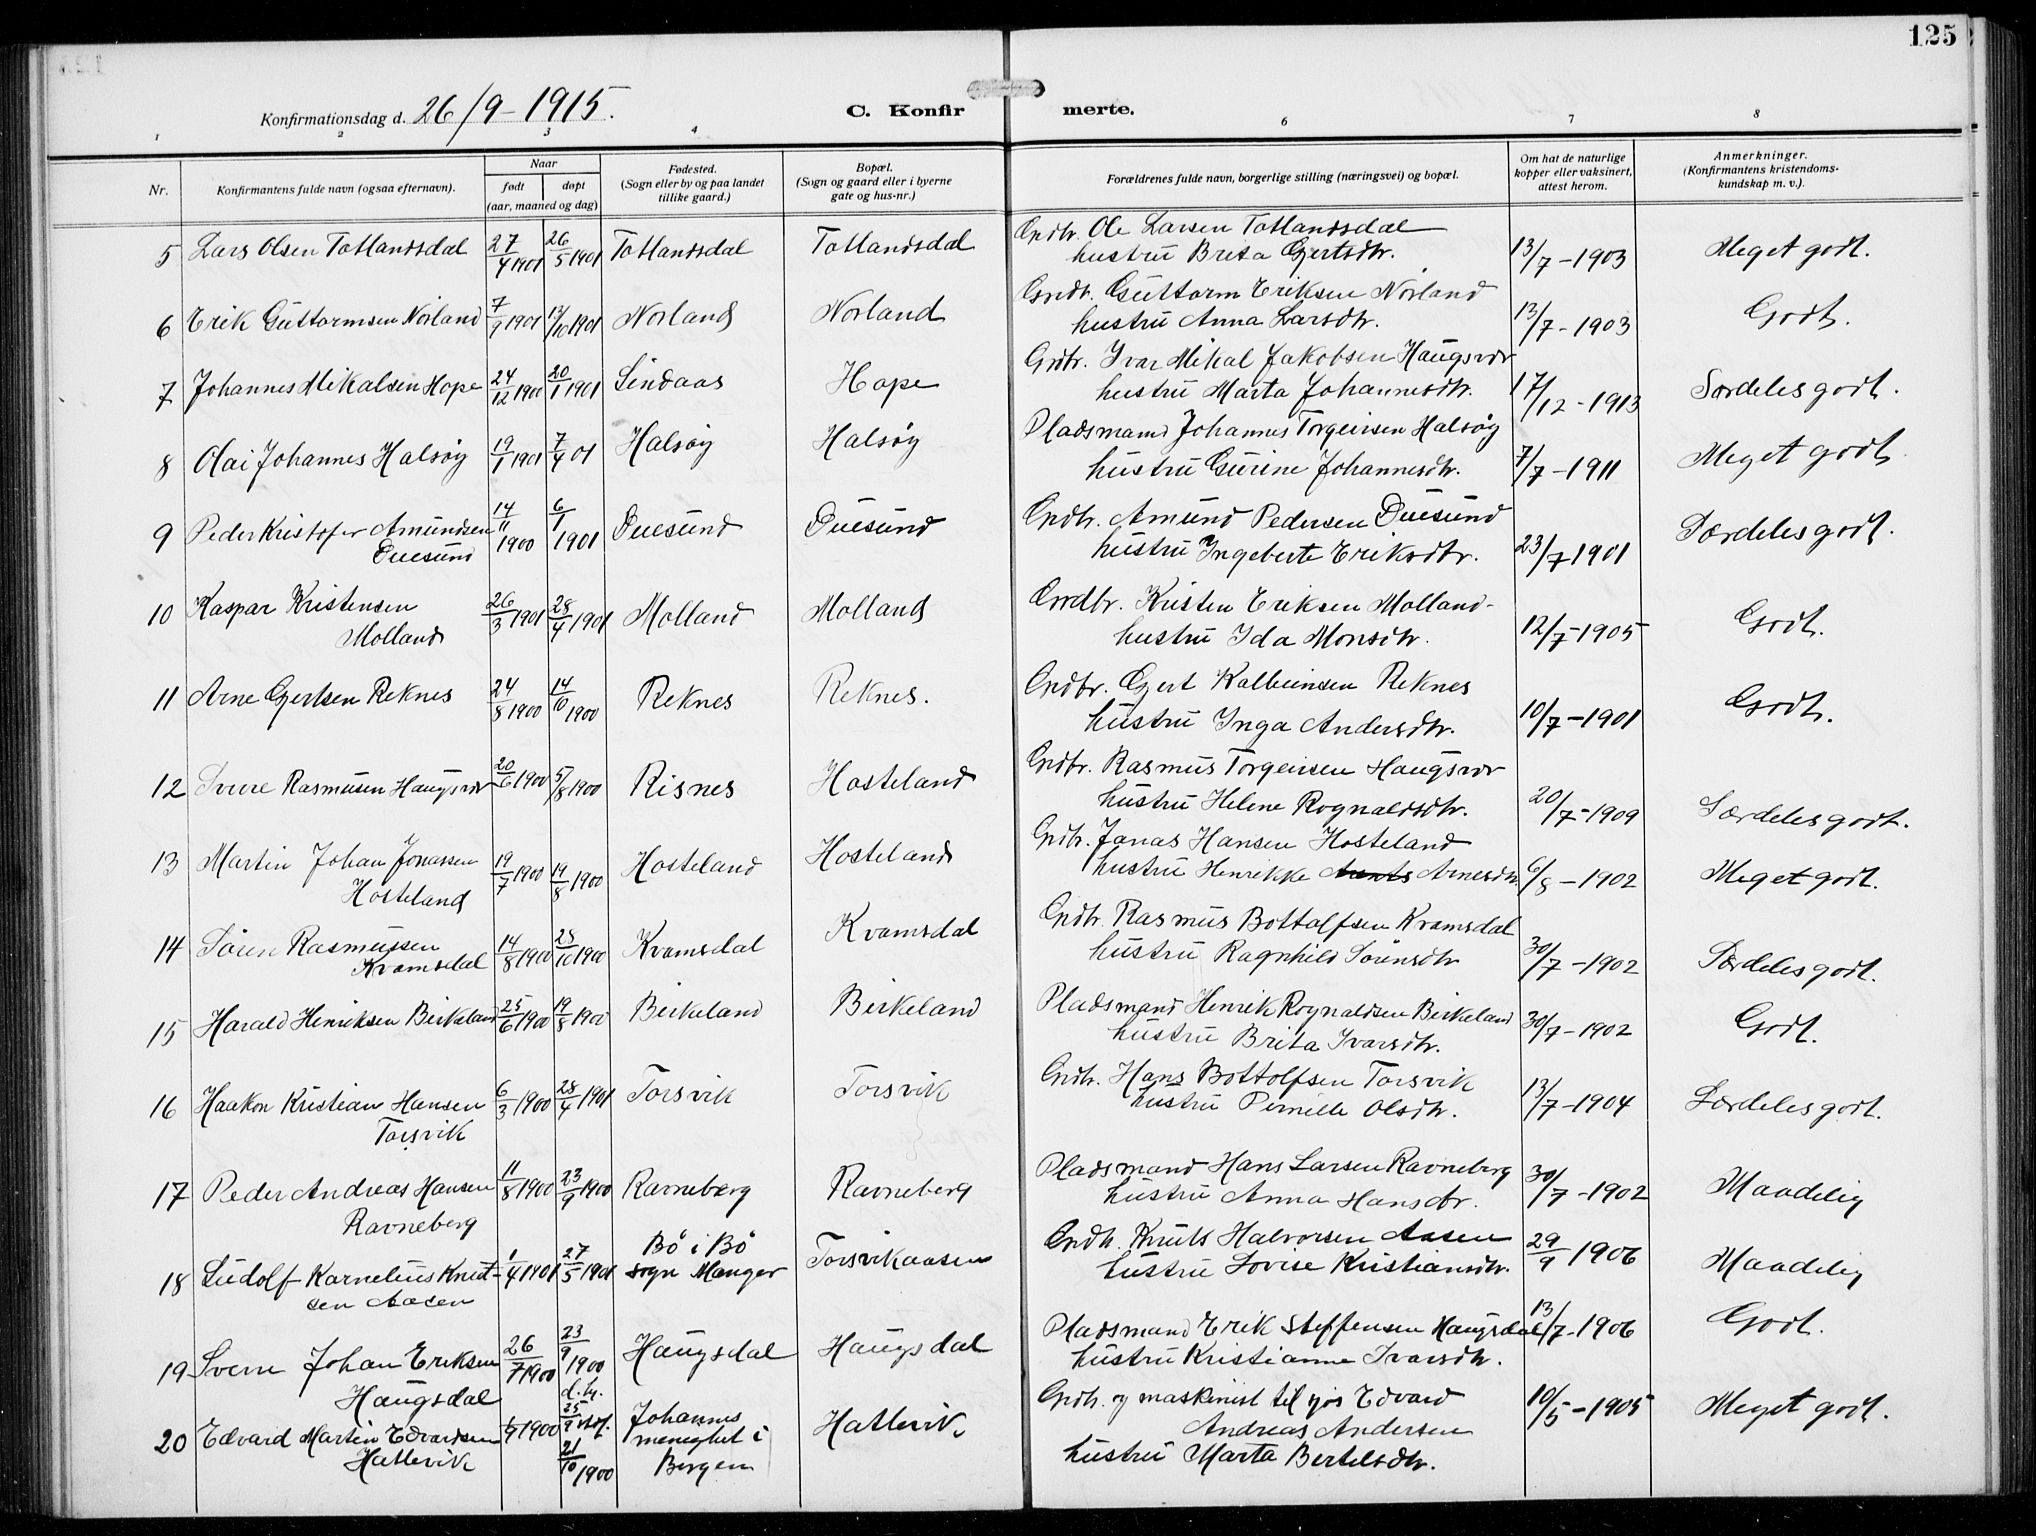 125
Konfirmationsdag d. 26/9-1915.
C. Konfirmerte.
1 2 3 4 6 7 8
Nr.
Konfirmantens fulde navn (ogsaa efternavn).
Naar
født døpt
(aar, maaned og dag)
Fødested.
(Sogn eller by og paa landet
tillike gaard.)
Bopæl.
(Sogn og gaard eller i byerne
gate og hus-nr.)
Forældrenes fulde navn, borgerlige stilling (næringsvei) og bopæl.
Om hat de naturlige
kopper eller vaksinert,
attest herom.
Anmerkninger.
(Konfirmantens kristendoms-
kundskap m. v.).
5 Lars Olsen Totlandsdal 27/4 1901 26/5 1901 Totlandsdal Totlandsdal Grdbr. Ole Larsen Totlandsdal
hustru Brita Gjertsdtr. 13/7-1903 Meget godt.
6 Erik Guttormsen Norland 7/9 1901 13/10 1901 Norland Norland Grdbr. Guttorm Eriksen Norland
hustru Anna Larsdtr. 13/7-1903 Godt.
7 Johannes Mikalsen Hope 24/12 1900 20/1 1901 Lindaas Hope Grdbr. Ivar Mikal Jakobsen Haugsvær
hustru Marta Johannesdtr. 17/12-1913 Særdeles godt.
8 Olai Johannes Halsøy 19/1 1901 7/4 01 Halsøy Halsøy Pladsmand Johannes Torgeirsen Halsøy
hustru Gurine Johannesdtr. 7/7-1911 Meget godt
9 Peder Kristofer Amundsen
Duesund 14/11 1900 6/1 1901 Duesund Duesund Grdbr. Amund Pedersen Duesund
hustru Ingeberte Eriksdtr. 23/7 1901 Særdeles godt.
10 Kaspar Kristensen
Molland 26/3 1901 28/4 1901 Molland Molland Grdbr. Kristen Eriksen Molland-
hustru Ida Monsdtr. 12/7-1905 Godt.
11 Arne Gjertsen Reknes 24/8 1900 14/10 1900 Reknes Reknes. Grdbr. Gjert Kolbeinsen Reknes
hustru Inga Andersdtr. 10/7-1901 Godt.
12 Sverre Rasmusen Haugsvær 20/6 1900 5/8 1900 Risnes Hosteland Grdbr. Rasmus Torgeirsen Haugsvær
hustru Helene Rognaldsdtr. 20/7-1909 Særdeles godt.
13 Martin Johan Jonassen
Hosteland 19/7 1900 19/8 1900 Hosteland Hosteland Grdbr. Jonas Hansen Hosteland
hustru Henrikke Arnesdtr. 6/8-1902 Meget godt.
14 Søren Rasmussen
Kvamsdal 14/8 1900 28/10 1900 Kvamsdal Kvamsdal Grdbr. Rasmus Bottolfsen Kvamsdal
hustru Ragnhild Sørensdtr 30/7-1902 Særdeles godt.
15 Harald Henriksen Birkeland 25/6 1900 19/8 1900 Birkeland Birkeland Pladsmand Henrik Rognaldsen Birkeland
hustru Brita Ivarsdtr. 30/7-1902 Godt.
16 Haakon Kristian Hansen
Torsvik 6/3 1900 28/4 1901 Torsvik Torsvik Grdbr. Hans Bottolfsen Torsvik
hustru Pernille Olsdtr. 13/7-1904 Særdeles godt.
17 Peder Andreas Hansen
Ravneberg 11/8 1900 23/9 1900 Ravneberg Ravneberg Pladsmand Hans Larsen Ravneberg
hustru Anna Hansdtr. 30/7-1902 Maadelig
18 Ludolf Karnelius Knut-
sen Aasen 1/4 1901 27/5 1901 Bö i Bö
sogn Manger Torsvikaasen Grdbr. Knut Halvorsen Aasen
hustru Lovise Kristiansdtr. 29/9 1906 Maadelig
19 Sverre Johan Eriksen
Haugsdal 26/7 1900 23/9 1900 Haugsdal Haugsdal Pladsmand Erik Steffensen Haugsdal
hustru Kristianne Ivarsdtr. 13/7-1906 Godt.
20 Edvard Martin Edvardsen
Hatlevik 1/9 1900 d. hj. 25/9 stadf. 21/10 1900 Johannes
menighet i
Bergen Hatlevik Grdbr. og maskinist til sjös Edvard
Andreas Andersen
hustru Marta Bertelsdtr. 10/5-1905 Meget godt.